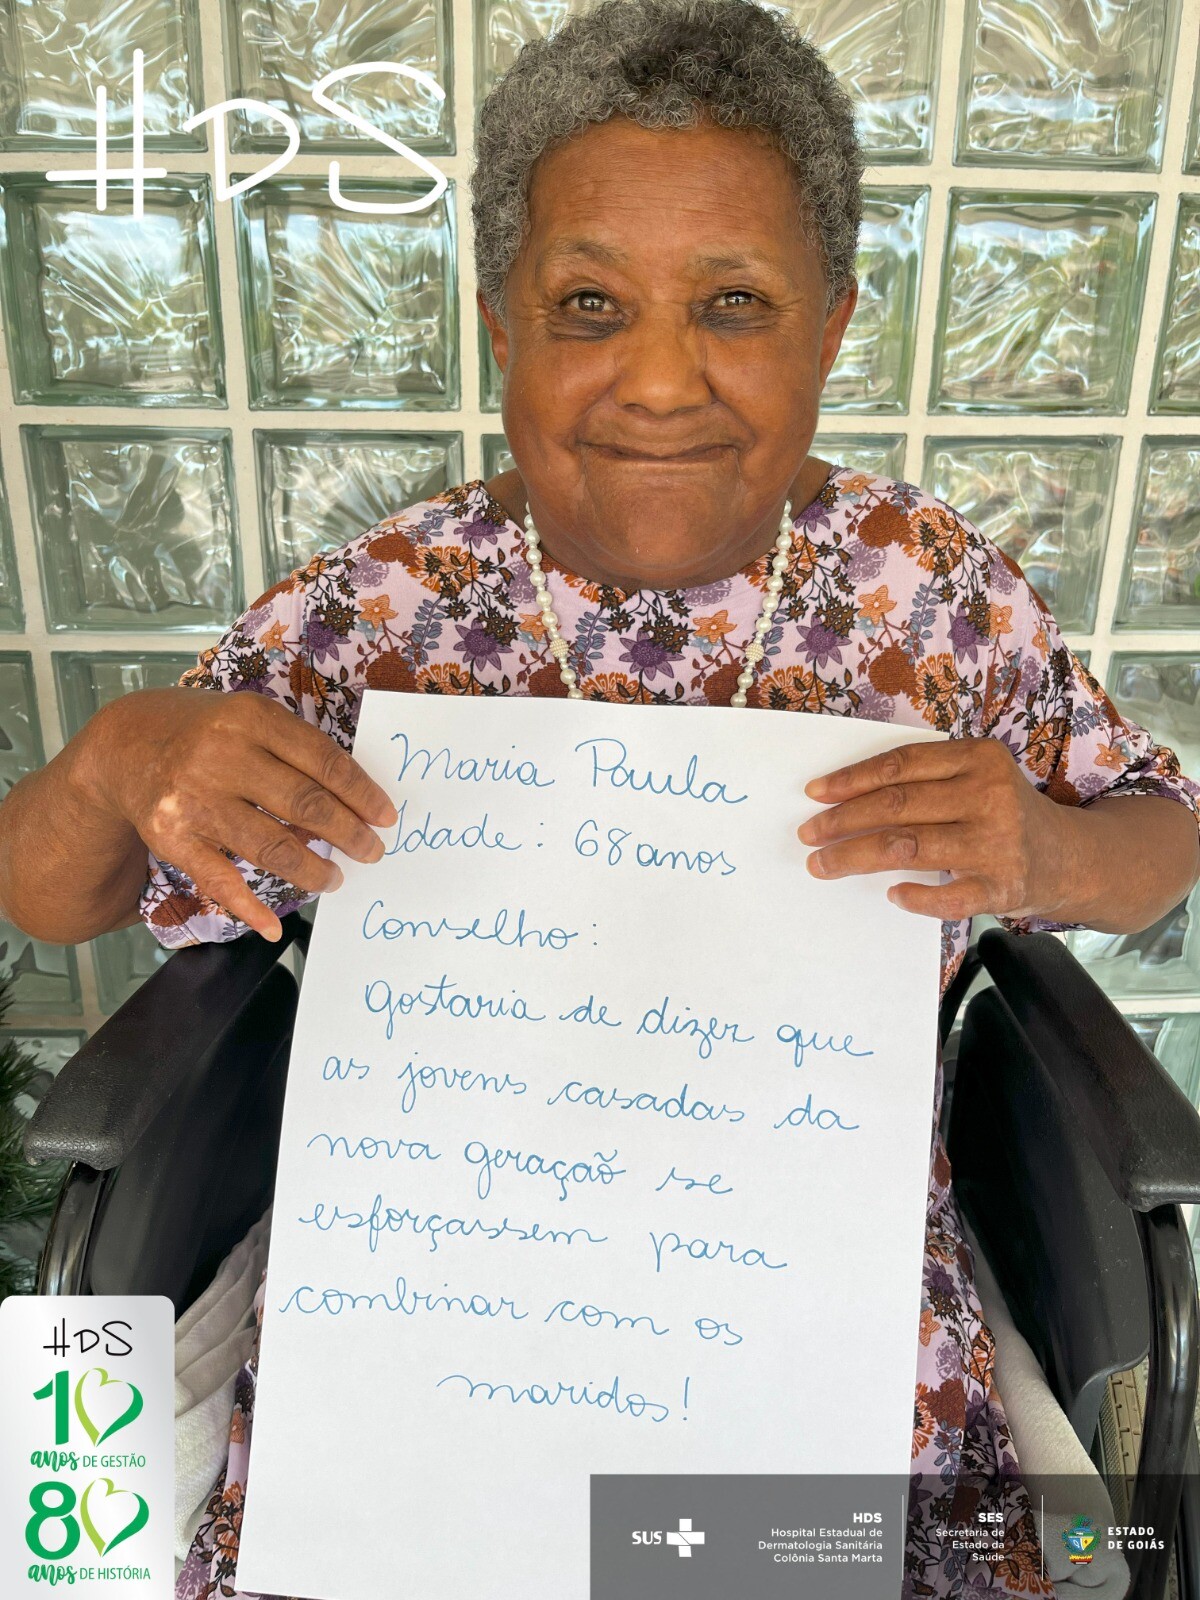 HDS
Maria Paula
Idade: 68 anos
Conselho:
gostaria de dizer que
as jovens casadas da
nova geração se
esforçassem para
combinar com os
maridos!
HDS
10
anos DE GESTÃO
80
anos DE HISTÓRIA
SUS
HDS
Hospital Estadual de
Dermatologia Sanitária
Colônia Santa Marta
SES
Secretaria de
Estado da
Saúde
ESTADO
DE GOIÁS